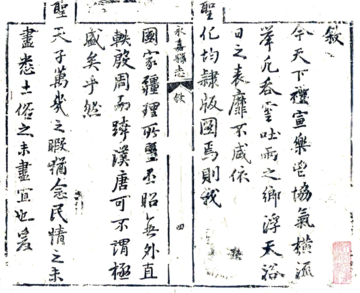 敘
今天下禮宣樂鬯協氣橫流
舉凡吞雲吐雨之鄉浮天浴
日之表靡不咸依
聖化均隸版圖焉則我
永嘉縣志
敘
四
國家疆理所暨丕昭無外直
軼殷周而跨漢唐可不謂極
盛矣乎然
聖天子萬幾之暇猶念民情之未
盡悉土俗之未盡宜也爰